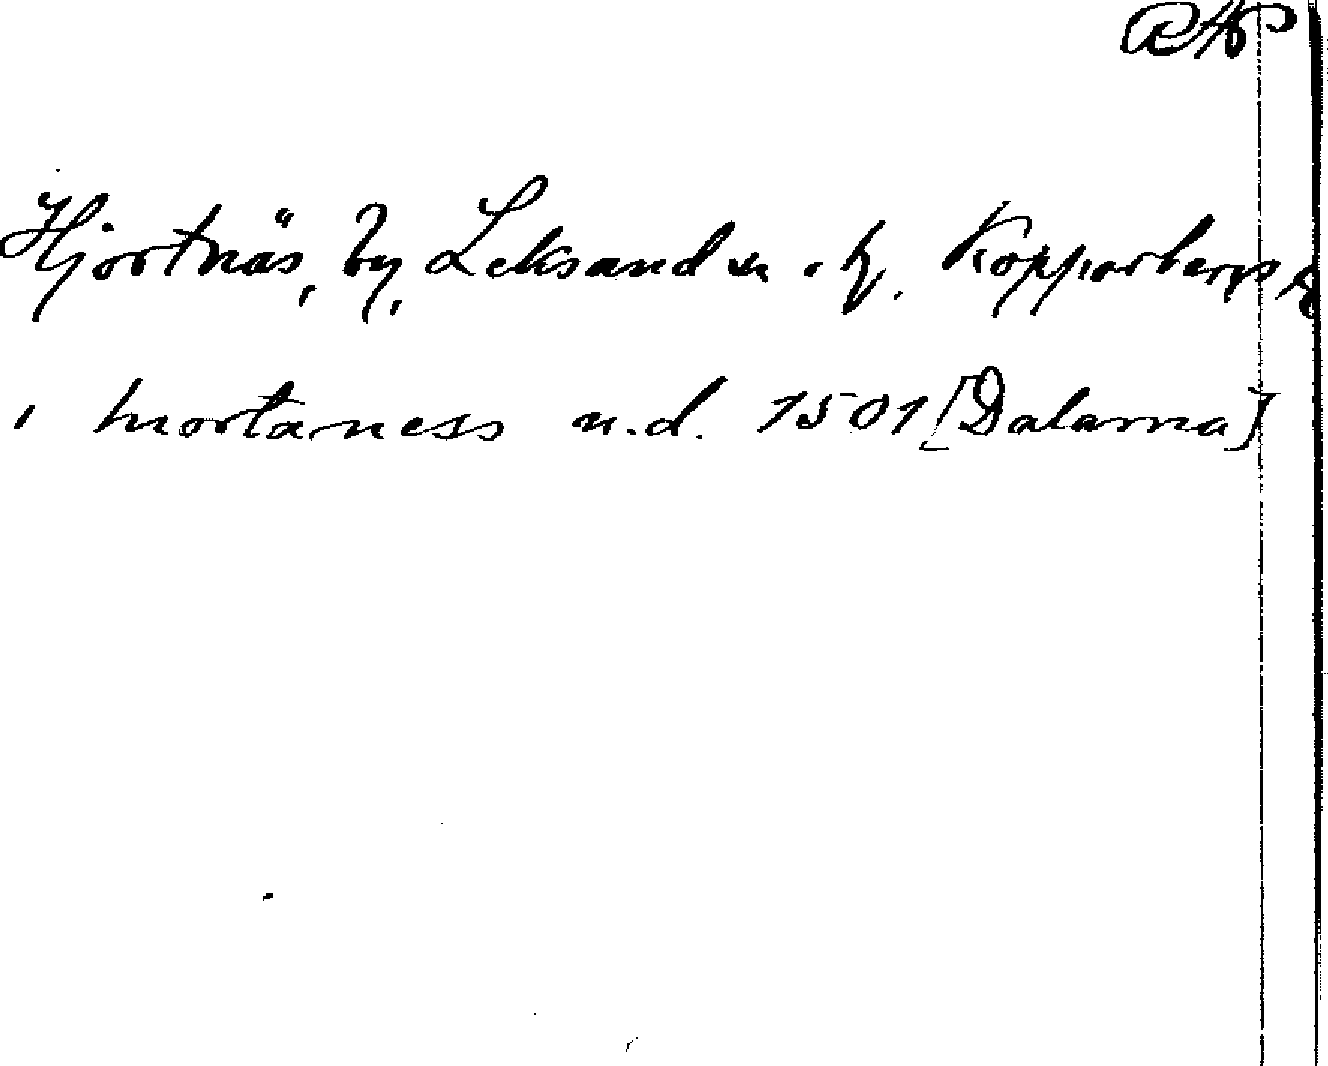 RAP
Hjortnäs, by, Leksand sn. o. tg. Kopparbergs
i hiortaness u.d. 1501 [Dalarna]